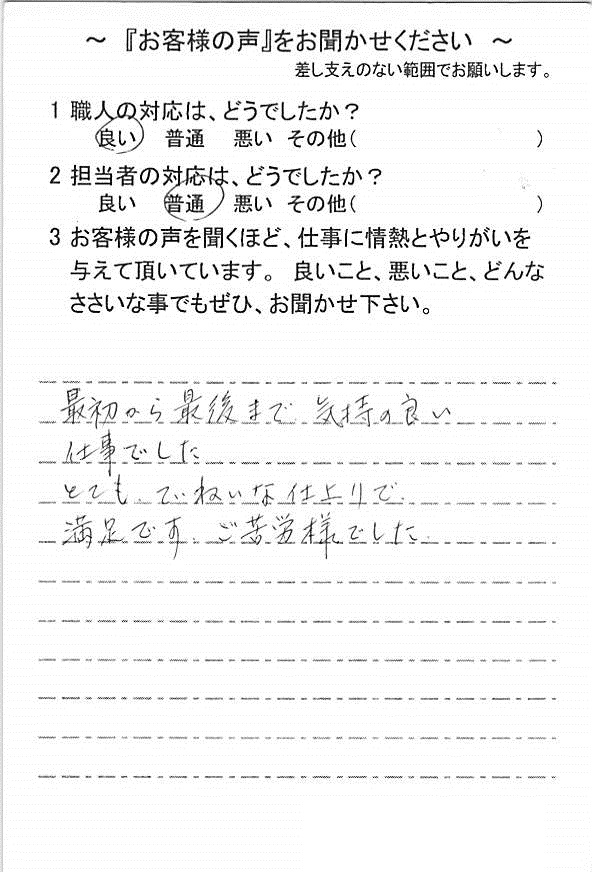 ～ 『お客様の声』をお聞かせください ～
差し支えのない範囲でお願いします。
1 職人の対応は、どうでしたか？
良い 普通 悪い その他( )
2 担当者の対応は、どうでしたか？
良い 普通 悪い その他( )
3 お客様の声を聞くほど、仕事に情熱とやりがいを
与えて頂いています。 良いこと、悪いこと、どんな
ささいな事でもぜひ、お聞かせ下さい。
最初から最後まで 気持の良い
仕事でした
とても、ていねいな仕上りで、
満足です。ご苦労様でした。